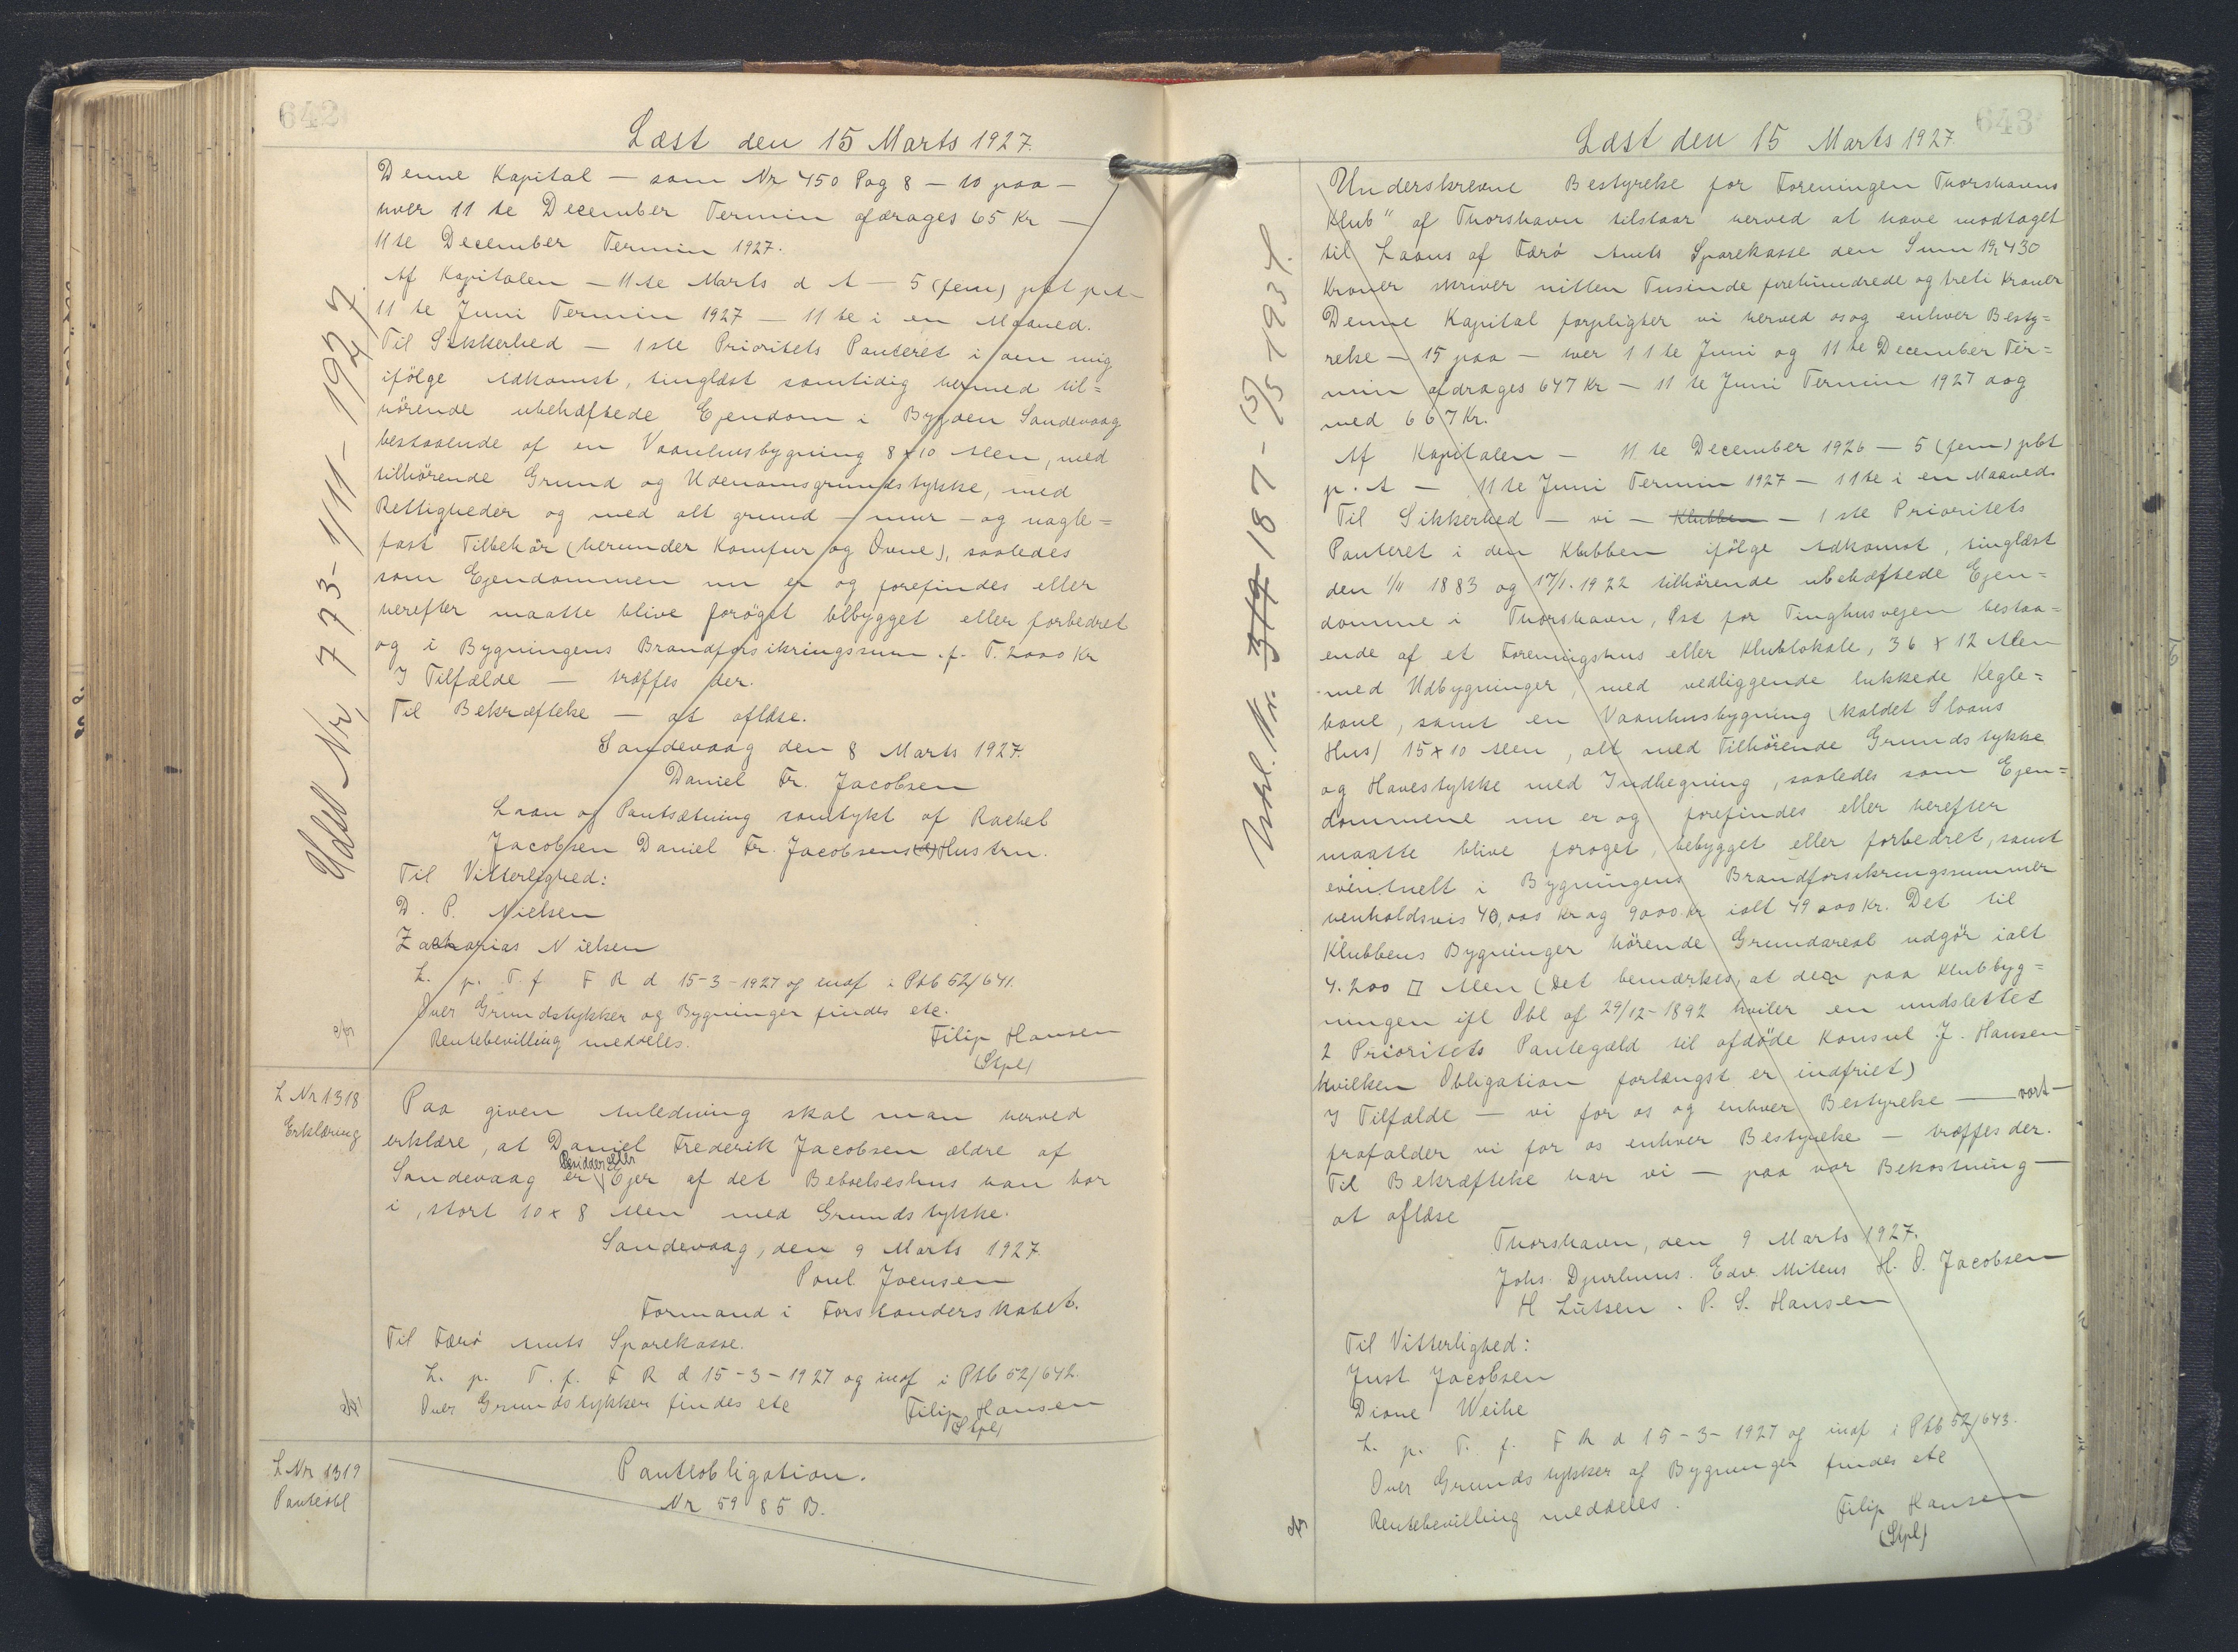 642
Læst den 15 Marts 1927.
Denne Kapital — som Nr 450 Pag 8 — 10 paa —
hver 11 te December Termin afdrages 65 Kr —
11te December Termin 1927.
Af Kapitalen — 11te Marts d A — 5 (fem) pct p.A —
11 te Juni Termin 1927 — 11 te i en Maaned.
Til Sikkerhed — 1ste Prioritets Panteret i den mig
ifølge Adkomst, tinglæst samtidig hermed til=
hörende ubehæftede Ejendom i Bygden Sandevaag
bestaaende af en Vaanhusbygning 8 x 10 Alen, med
tilhörende Grund og Udenomsgrundstykke, med
Rettigheder og med alt grund — mur — og nagle=
fast Tilbehör (herunder Komfur og Ovne), saaledes
som Ejendommen nu er og forefindes eller
herefter maatte blive forøget tilbygget eller forbedret
og i Bygningens Brandforsikringssum .f. T. 2000 Kr
I Tilfælde — træffes der.
Til Bekræftelse — at aflæse.
Sandevaag den 8 Marts 1927.
Daniel Fr. Jacobsen
Laan og Pantsætning samtykt af Rachel
Jacobsen Daniel Fr. Jacobsens Hustru.
Til Vitterlighed:
D. P. Nielsen
Zacharias Nielsen
L. p. T. f F R d 15-3-1927 og indf i Ptb 52/641.
Over Grundstykker og Bygninger findes etc.
Rentebevilling meddeles.
Filip Hansen
(Stpl)
Udsl Nr, 773 - 1/11 - 1927
L Nr 1318
Erklæring
Paa given Anledning skal man herved
erklære, at Daniel Frederik Jacobsen ældre af
Sandevaag er Besidder eller Ejer af det Beboelseshus han bor
i, stort 10 x 8 Alen med Grundstykke.
Sandevaag, den 9 Marts 1927.
Poul Joensen
Formand i Forstanderskabet.
Til Færø Amts Sparekasse.
L. p. T. f. F R d 15-3-1927 og indf i Ptb 52/642.
Over Grundstykker findes etc
Filip Hansen
(Stpl)
L Nr 1319
Panteobl
Panteobligation.
Nr 5985 B.
643
Læst den 15 Marts 1927.
Underskrevne Bestyrelse for Foreningen Thorshavns
Klub" af Thorshavn tilstaar herved at have modtaget
til Laans af Færø Amts Sparekasse den Sum 19,430
Kroner skriver nitten Tusinde firehundrede og treti Kroner
Denne Kapital forpligter vi herved os og enhver Besty=
relse — 15 paa — hver 11te Juni og 11te December Ter=
min afdrages 647 Kr — 11 te Juni Termin 1927 dog
med 667 Kr.
Af Kapitalen — 11 te December 1926 — 5 (fem) pct
p. A — 11te Juni Termin 1927 — 11te i en Maaned.
Til Sikkerhed — vi — Klubben — 1 ste Prioritets
Panteret i den Klubben ifölge Adkomst, tinglæst
den 1/11 1883 og 17/1. 1922 tilhörende ubehæftede Ejen=
domme i Thorshavn, Øst for Tinghusvejen bestaa=
ende af et Foreningshus eller Klublokale, 36 x 12 Alen
med Udbygninger, med vedliggende lukkede Kegle=
bane, samt en Vaanhusbygning (kaldet Sloans
Hus) 15 x 10 Alen, alt med Tilhörende Grundstykke
og Havestykke med Indhegning, saaledes som Ejen=
dommene nu er og forefindes eller herefter
maatte blive forøget, bebygget eller forbedret, samt
eventuelt i Bygningens Brandforsikringssummer
henholdsvis 40,000 Kr og 9000 Kr ialt 49000 Kr. Det til
Klubbens Bygninger hörende Grundareal udgör ialt
4.200 □ Alen (Det bemærkes, at der paa Klubbyg=
ningen ifl Obl af 29/12-1892 hviler en uudslettet
2 Prioritets Pantegæld til afdöde Konsul J. Hansen
hvilken Obligation forlængst er indfriet)
I Tilfælde — vi for os og enhver Bestyrelse — vort —
frafalder vi for os enhver Bestyrelse — træffes der.
Til Bekræftelse har vi — paa vor Bekostning —
at aflæse
Thorshavn, den 9 Marts 1927.
Johs Djurhuus. Edv. Mitens H. O. Jacobsen
H Lützen. P. S. Hansen
Til Vitterlighed:
Just Jacobsen
Diane Weihe
L. p. T. f. F R d 15-3-1927 og indf i Ptb 52/643.
Over Grundstykker og Bygninger findes etc
Rentebevilling meddeles.
Filip Hansen
(Stpl)
Udsl. Nr. 317 187 - 15/5 1934.